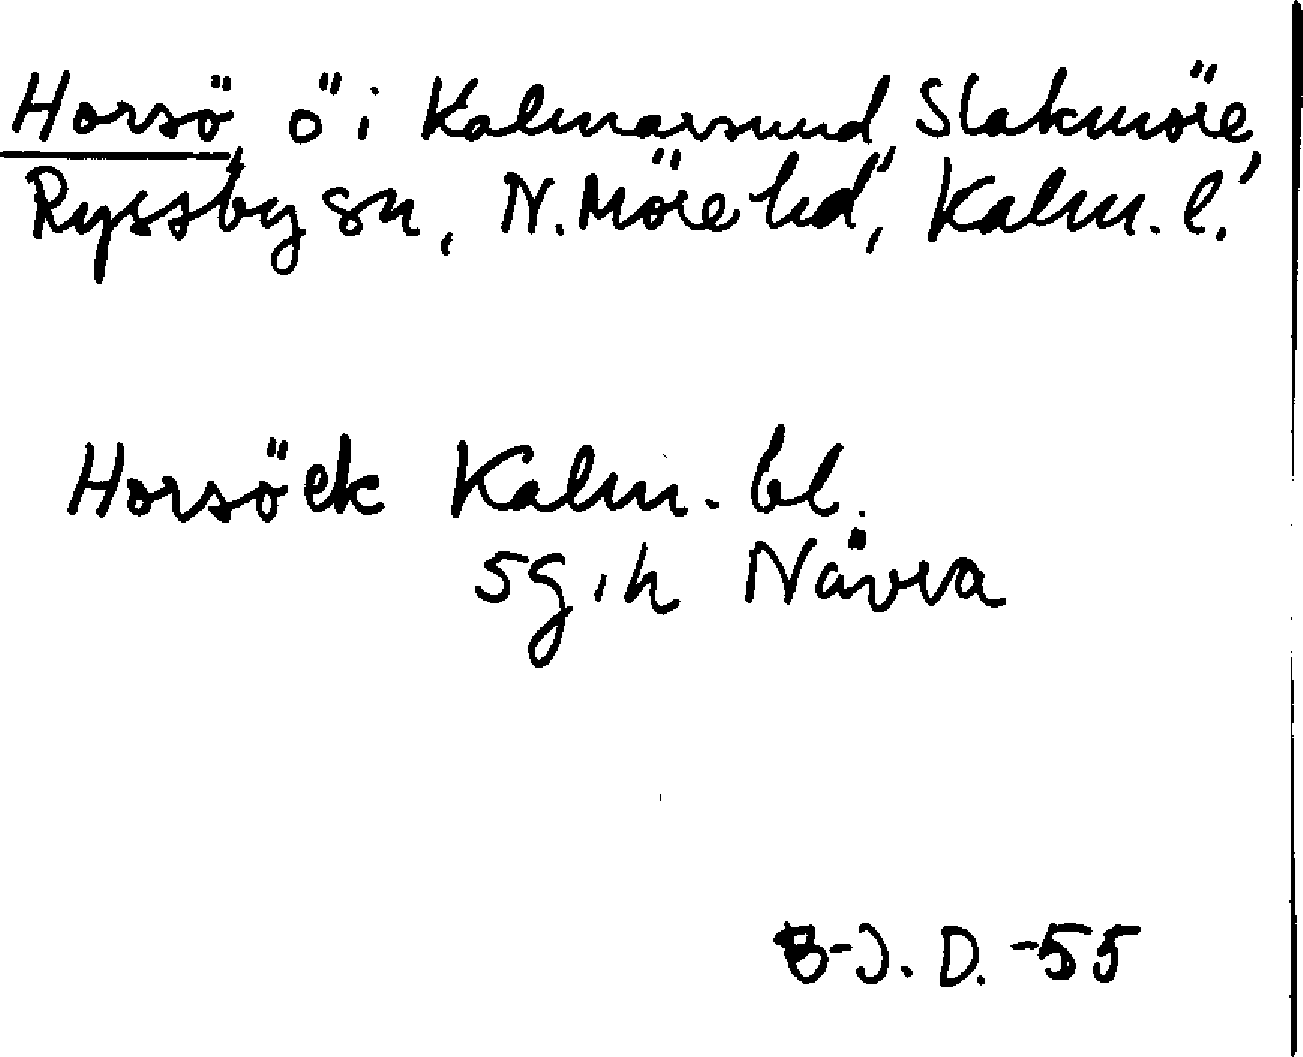 Horsö, ö i Kalmarsund, Slakmöre,
Ryssby sn, N. Möre hd, Kalm. l.
Horsöek Kalm. bl.
5 g.h Nävra
B-J. D. -55